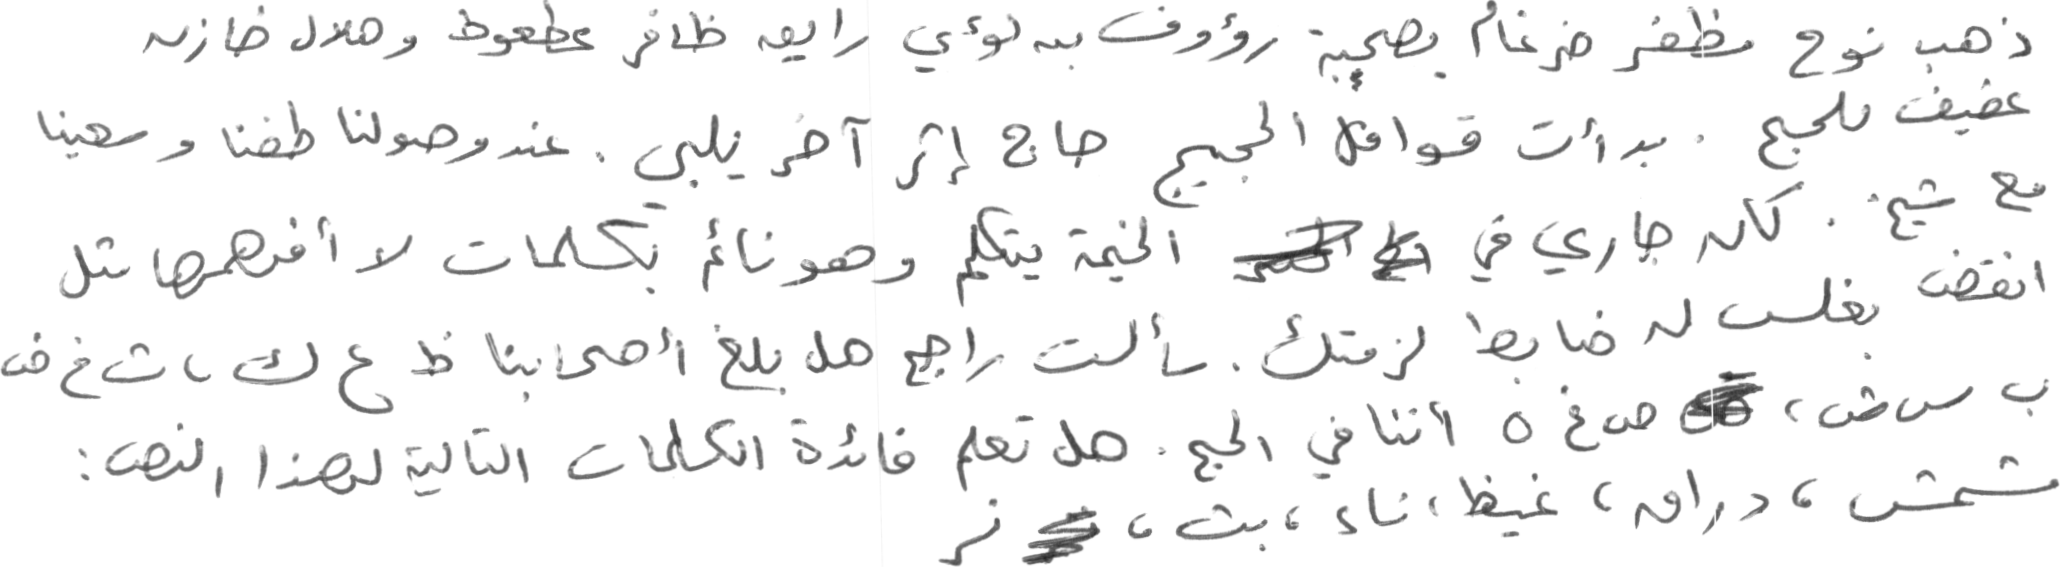 ذهب نوح مظفر ضرغام بصحبة رؤوف بن لؤي رايق ظافر عطعوط وهلال خازن
عفيف للحج. بدأت قوافل الحجيج حاج إثر آخر يلبي. عند وصولنا طفنا وسعينا
مع شيخ. كان جاري في الخيمة يتكلم وهو نائم بكلمات لا أفهمها مثل
انقض بغلس له ضابط لزمتك. سألت راجح هل بلغ أصحابنا ظ ع ك، ث غ ف
ب س ض، ص غ ه أننا في الحج. هل تعلم فائدة الكلمات التالية لهذا النص:
مشمش، دراق، غيظ، ناء، بث، نر